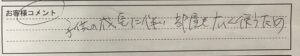 お客様コメント
子供の成長に伴い部屋を広く使うため